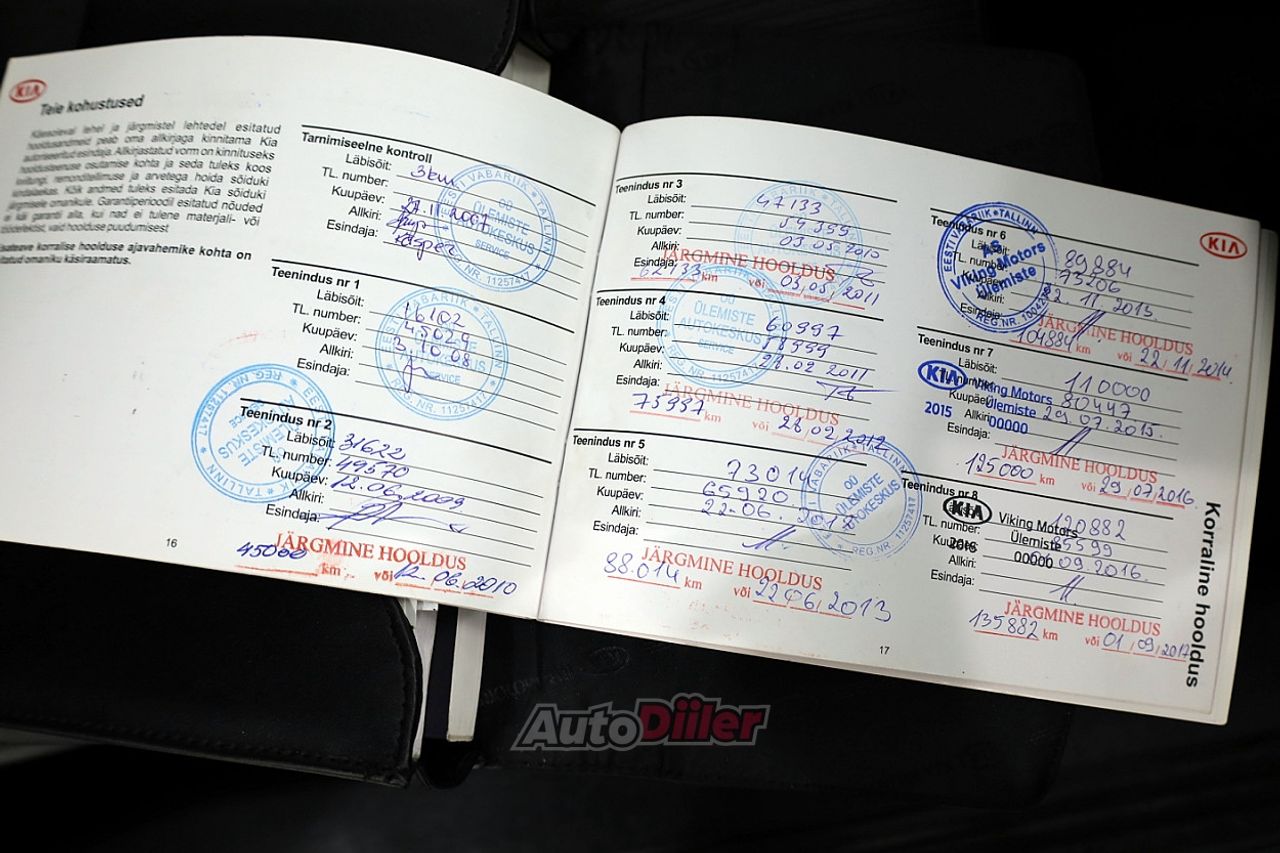 KIA
Teie kohustused
Käesoleval lehel ja järgmistel lehtedel esitatud
hooldusandmeid peab oma allkirjaga kinnitama Kia
autoriseeritud esindaja. Allkirjastatud vorm on kinnituseks
hooldusteenuse osutamise kohta ja seda tuleks koos
remonditellimuse ja arvetega hoida sõiduki
kindalaekas. Kõik andmed tuleks esitada Kia sõiduki
järgmisele omanikule. Garantiiperioodil esitatud nõuded
ei käi garantii alla, kui nad ei tulene materjali- või
töödefektist, vaid hoolduse puudumisest
korralise hoolduse ajavahemike kohta on
omaniku käsiraamatus.
Tarnimiseelne kontroll
Läbisõit: 3km
TL. number:
Kuupäev: 27.11.2007
Allkiri:
Esindaja: Kasper
EESTI VABARIIK * TALLINN
OÜ
ÜLEMISTE
AUTOKESKUS
SERVICE
NR. 11257417
Teenindus nr 1
Läbisõit: 16102
TL. number: 45029
Kuupäev: 3.10.08
Allkiri:
Esindaja:
SERVICE
REG. NR. 11257417
Teenindus nr 2
Läbisõit: 31622
TL. number: 49570
Kuupäev: 12.06.2009
Allkiri:
Esindaja:
JÄRGMINE HOOLDUS
45000 km või 12.06.2010
16
Teenindus nr 3
Läbisõit: 47133
TL. number: 54355
Kuupäev:
Allkiri:
Esindaja:
JÄRGMINE HOOLDUS
62133 km või 03.05.2011
Teenindus nr 4
Läbisõit: 60997
TL. number: 58999
Kuupäev: 28.02 2011
Allkiri:
Esindaja:
OÜ
ÜLEMISTE
AUTOKESKUS
SERVICE
JÄRGMINE HOOLDUS
75997 km või 28.02 2012
Teenindus nr 5
Läbisõit: 73014
TL. number: 65920
Kuupäev: 22.06. 2012
Allkiri:
Esindaja:
EESTI VABARIIK * TALLINN
OÜ
ÜLEMISTE
AUTOKESKUS
REG.NR. 11257417
JÄRGMINE HOOLDUS
88.014 km või 22.06.2013
17
KIA
Teenindus nr 6
Läbisõit: 89884
TL. number: 73206
Kuupäev: 22.11.2013
Allkiri:
Esindaja:
EESTI VABARIIK * TALLINN
AS
Viking Motors
Ülemiste
JÄRGMINE HOOLDUS
104884 km või 22.11.2014
Teenindus nr 7
Läbisõit: 110000
TL. number: 80447
Kuupäev: 29.07.2015.
Allkiri:
Esindaja:
KIA Viking Motors
Ülemiste
2015 00000
JÄRGMINE HOOLDUS
125000 km või 29.07.2016
Teenindus nr 8
120882
TL. number: 85599
Kuupäev: 09.2016.
Allkiri:
Esindaja:
KIA Viking Motors
Ülemiste
2016 00000
JÄRGMINE HOOLDUS
135882 km või 01.09.2017
Korraline hooldus
AutoDiiler